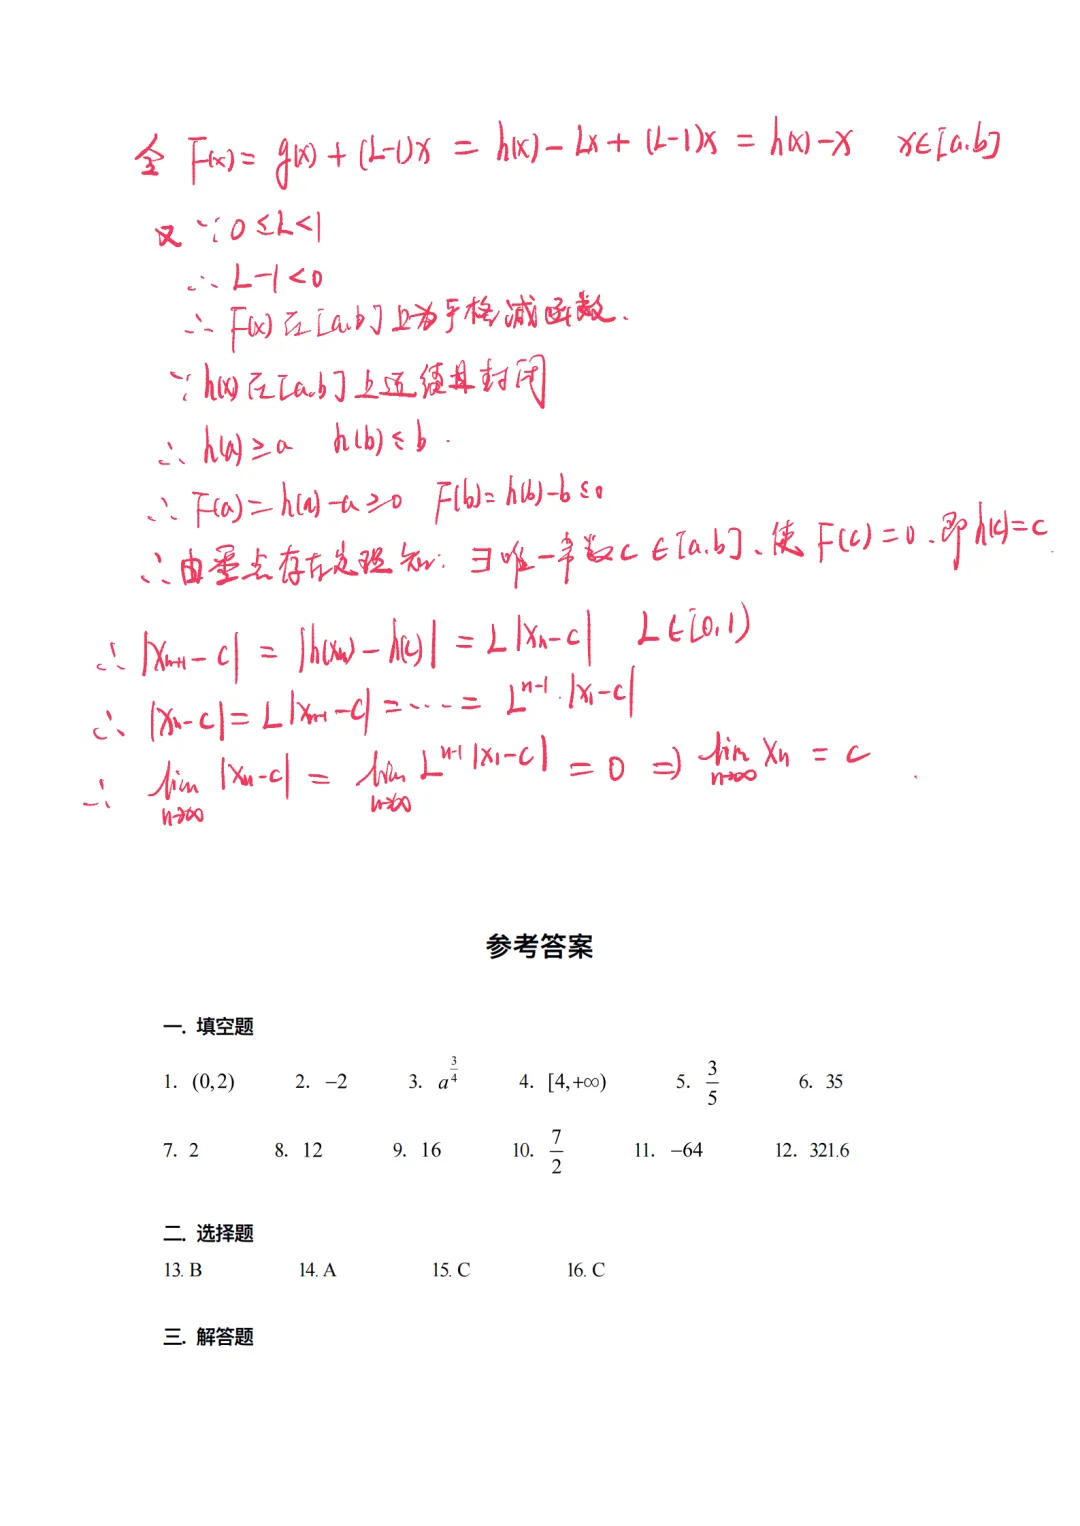 令 F(x) = g(x) + (L-1)x = h(x) - Lx + (L-1)x = h(x) - x x∈[a.b]
又 ∵ 0 ≤ L < 1
∴ L-1 < 0
∴ F(x) 在 [a.b] 上为严格减函数.
∵ h(x) 在 [a.b] 上连续且封闭
∴ h(a) ≥ a h(b) ≤ b .
∴ F(a) = h(a) - a ≥ 0 F(b) = h(b) - b ≤ 0
∴ 由零点存在定理知: ∃ 唯一实数 c ∈ [a.b]、使 F(c) = 0 . 即 h(c) = c
∴ |xₙ₊₁ - c| = |h(xₙ) - h(c)| = L |xₙ - c| L ∈ [0,1)
∴ |xₙ - c| = L |xₙ₋₁ - c| = ... = Lⁿ⁻¹ · |x₁ - c|
∴ lim n→∞ |xₙ - c| = lim n→∞ Lⁿ⁻¹ |x₁ - c| = 0 ⇒ lim n→∞ xₙ = c .
参考答案
一. 填空题
1. (0,2) 2. −2 3. a^(3/4) 4. [4,+∞) 5. 3/5 6. 35
7. 2 8. 12 9. 16 10. 7/2 11. −64 12. 321.6
二. 选择题
13. B 14. A 15. C 16. C
三. 解答题